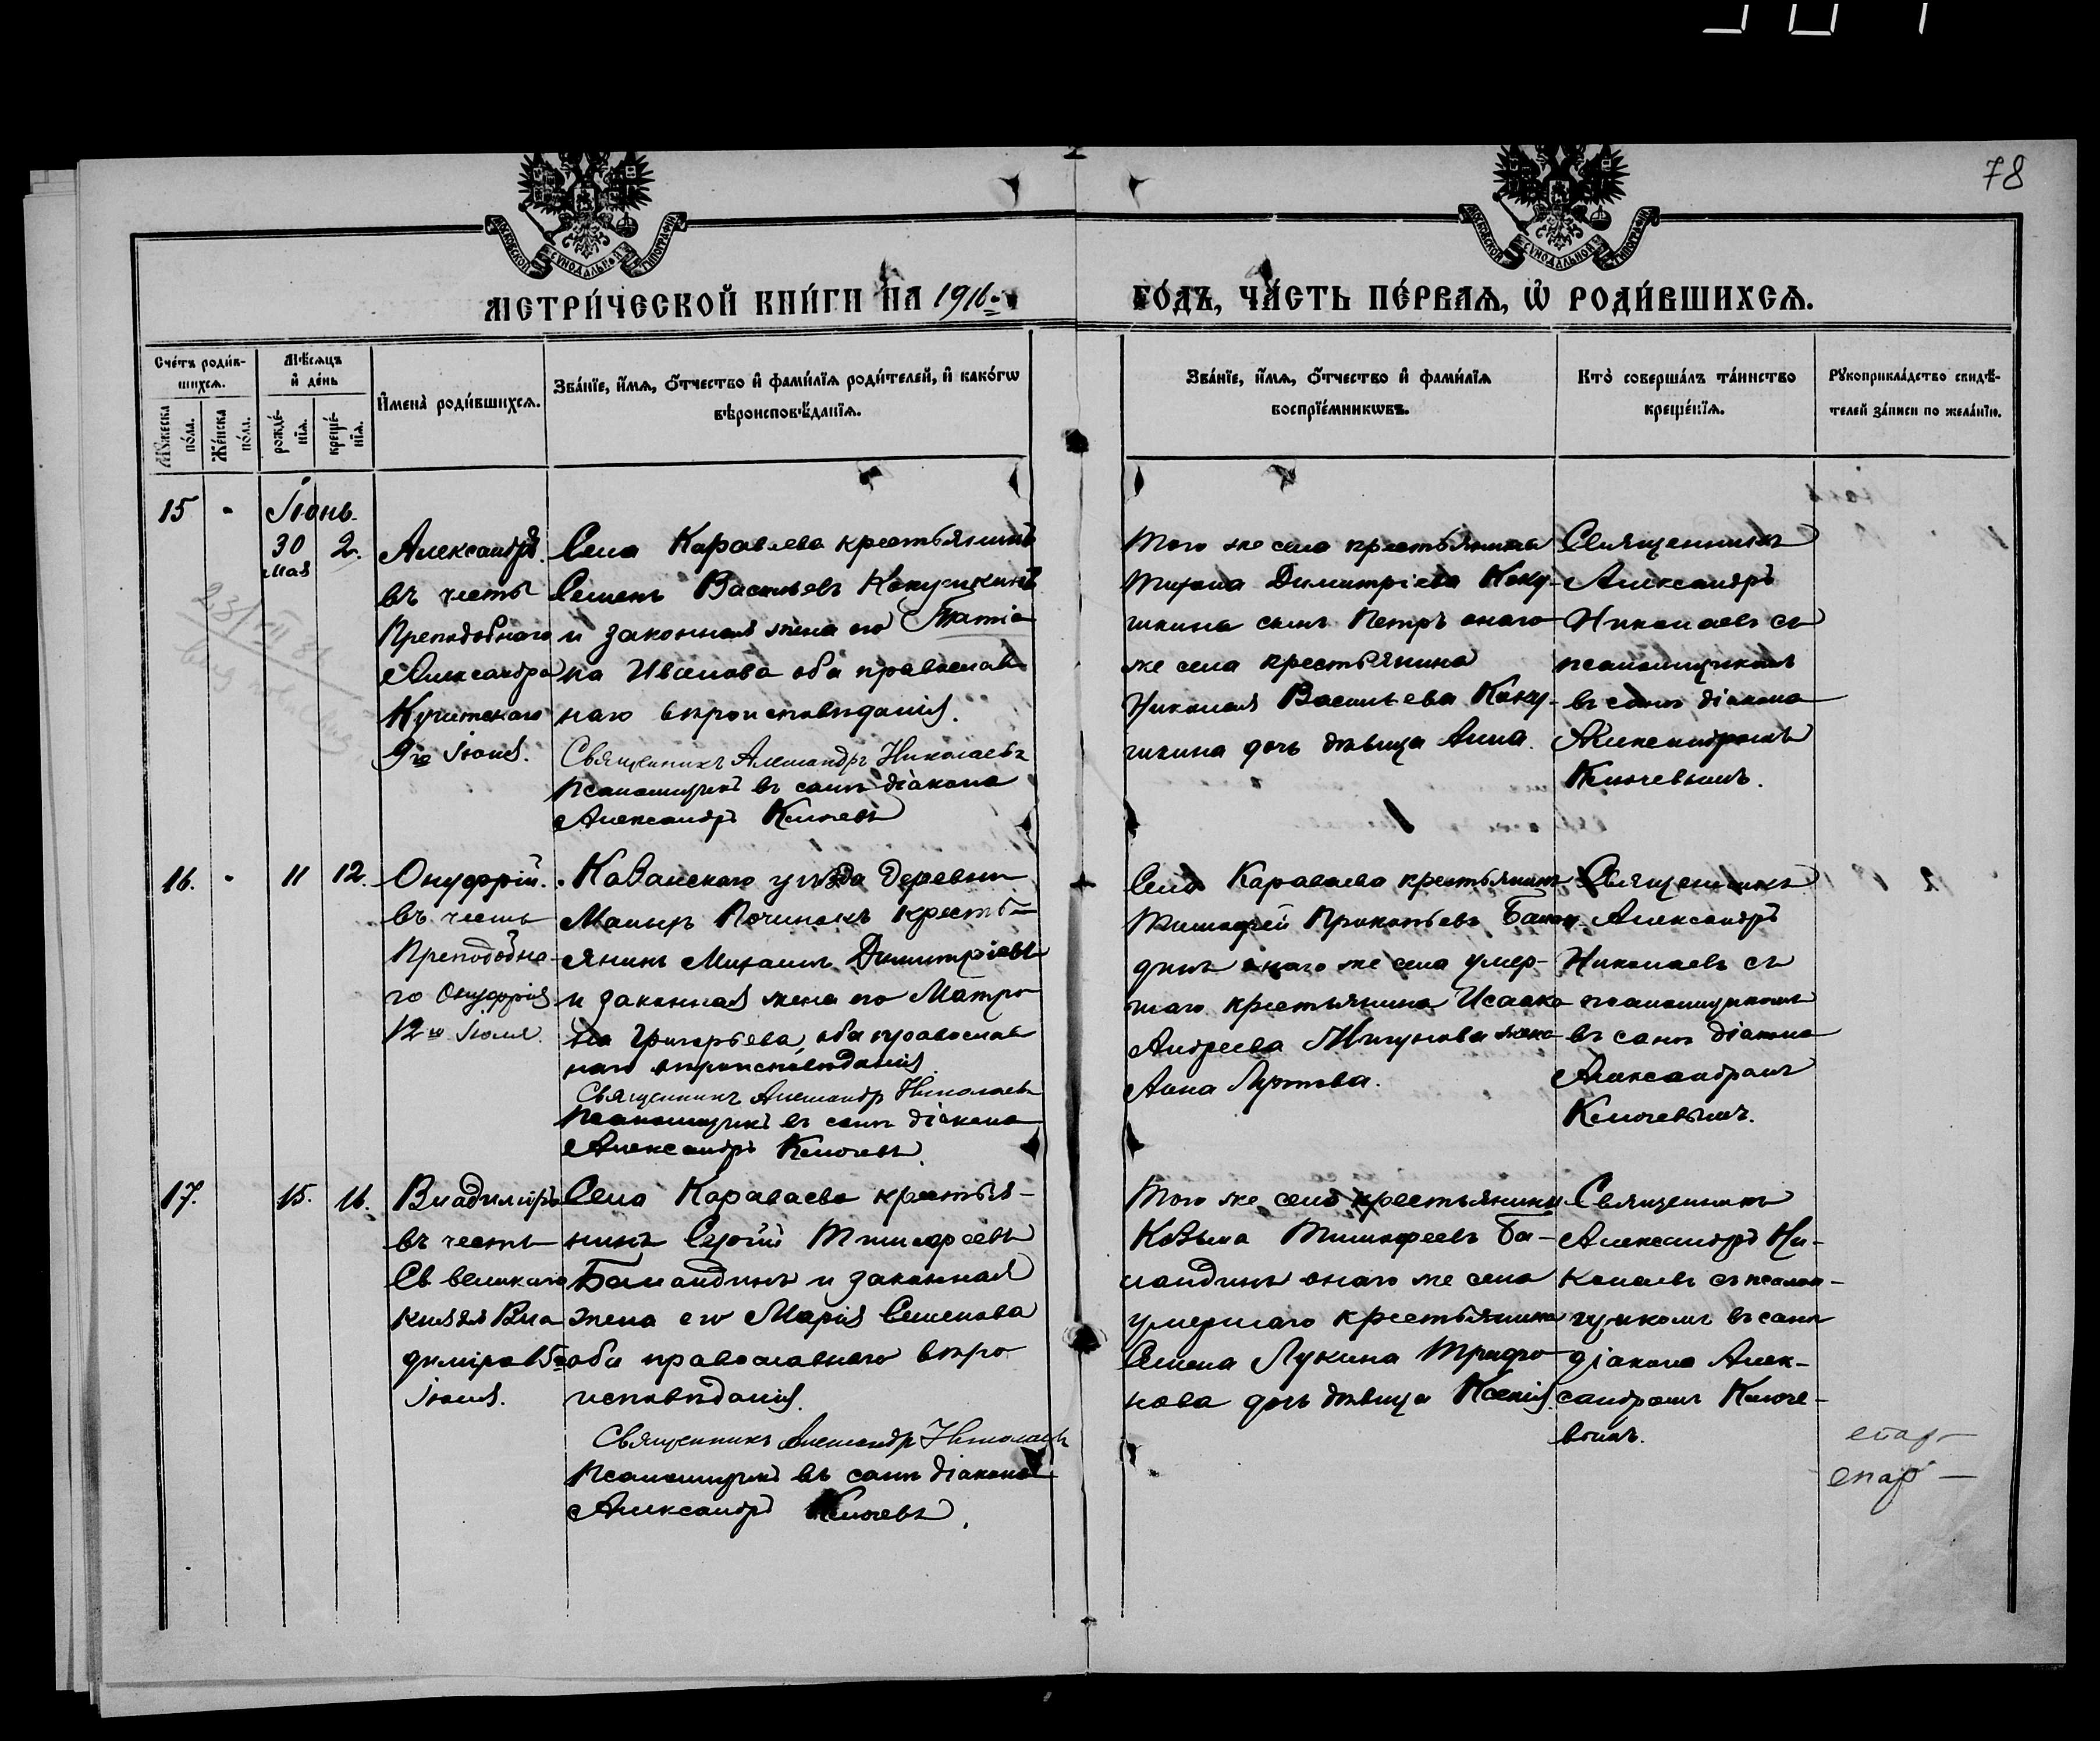 78
МОСКОВСКОЙ СУНОДАЛЬНОЙ ТИПОГРАФІИ
МОСКОВСКОЙ СУНОДАЛЬНОЙ ТИПОГРАФІИ
МЕТРИ́ЧЕСКОЙ КНИ́ГИ НА 1916.
ГО́ДЪ, ЧА́СТЬ ПЕ́РВАѦ, Ѡ҆ РОДИ́ВШИХСѦ.
Сче́тъ роди́в-
шихсѧ.
Мѣ́сѧцъ
и҆ де́нь
Мꙋ́жеска по́ла.
Же́нска по́ла.
рожде́-нїѧ.
креще́-нїѧ.
И҆мена̀ роди́вшихсѧ.
Зва́нїе, и҆́мѧ, ѻ҆́тчество и҆ фами́лїѧ роди́телей, и҆ како́гѡ
вѣроисповѣ́данїѧ.
Зва́нїе, и҆́мѧ, ѻ҆́тчество и҆ фами́лїѧ
воспрїе́мникѡвъ.
Кто̀ соверша́лъ та́инство
креще́нїѧ.
Рꙋкоприкла́дство свидѣ́-
телей за́писи по жела́нїю.
15
Іюнь.
30
мая
2.
Александръ.
въ честь
Преподобнаго
Александра
Куштскаго
9го Іюня.
Села Караваева крестьянинъ
Семенъ Васильевъ Кокушкинъ
и законная жена его Татіа
на Иванова оба православ
наго вѣроисповѣданія.
Священникъ Александръ Николаевъ
Псаломщикъ въ санѣ діакона
Александръ Ключевъ
Того же села крестьянина
Тихона Димитріева Коку-
шкина сынъ Петръ онаго
же села крестьянина
Николая Васильева Коку-
шкина дочь дѣвица Анна.
Священникъ
Александръ
Николаевъ съ
псаломщикомъ
въ санѣ діакона
Александромъ
Ключевымъ.
16.
11
12.
Онуфрій.
въ честь
Преподобна-
го Онуфрія
12го Іюня.
Казанскаго уѣзда деревни
Починокъ кресть-
янинъ Михаилъ Димитріевъ
и законная жена его Матро
на Григорьева, оба православ
наго вѣроисповѣданія.
Священникъ Александръ Николаевъ
Псаломщикъ въ санѣ діакона
Александръ Ключевъ.
Села Караваева крестьянинъ
Тимофей Прокопьевъ Балан
динъ онаго же села умер-
шаго крестьянина Исаака
Андреева жена
Анна
Священникъ
Александръ
Николаевъ съ
псаломщикомъ
въ санѣ діакона
Александромъ
Ключевымъ.
17.
15.
16.
Владиміръ
въ честь
Св великаго
князя Вла
диміра 15го
Іюля.
Села Караваева крестья-
нинъ Сергій Тимофеевъ
Баландинъ и законная
жена его Марія Семенова
оба православнаго вѣро
исповѣданія.
Священникъ Александръ Николаевъ
Псаломщикъ въ санѣ діакона
Александръ Ключевъ.
Того же села крестьянинъ
Козьма Тимофеевъ Ба-
ландинъ онаго же села
умершаго крестьянина
Семена Лукина Трифо
нова дочь дѣвица Ксенія.
Священникъ
Александръ Ни-
колаевъ съ псалом-
щикомъ въ санѣ
діакона Алек-
сандромъ Ключе-
вымъ.
епар-
епар-